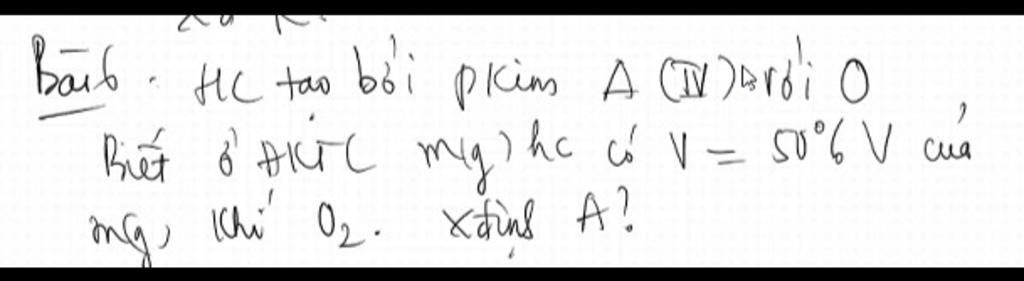 Bài 6. HC tạo bởi pkim A (IV) với O
Biết ở ĐKTC m(g) hc có V = 50% V của
m(g) khí O2. Xđịnh A?